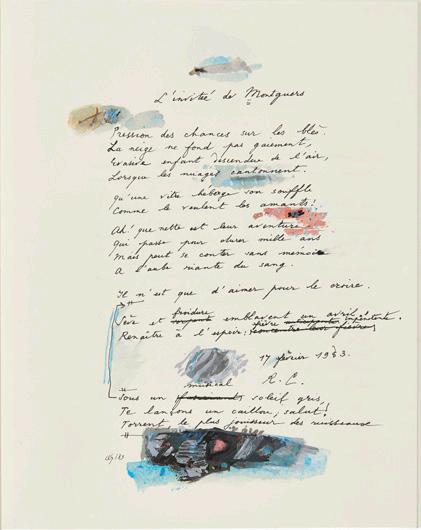 L'invitée de Montguers
Pression des chances sur les blés.
La neige ne fond pas gaiement,
Evasive enfant descendue de l'air,
Lorsque les nuages cantonnent.
Qu'une vitre héberge son souffle
Comme le veulent les amants!
Ah! que nette est leur aventure
Qui passe pour durer mille ans
Mais peut se conter sans mémoire
A l'aube riante du sang.
Il n'est que d'aimer pour le croire.
froidure
Sève et emblavent un avril
fièvre impénitente.
Renaître à l'espoir:
17 février 1963.
R. C.
musical
Sous un soleil gris,
Te lançons un caillou, salut!
Torrent, le plus jouisseur des ruisseaux